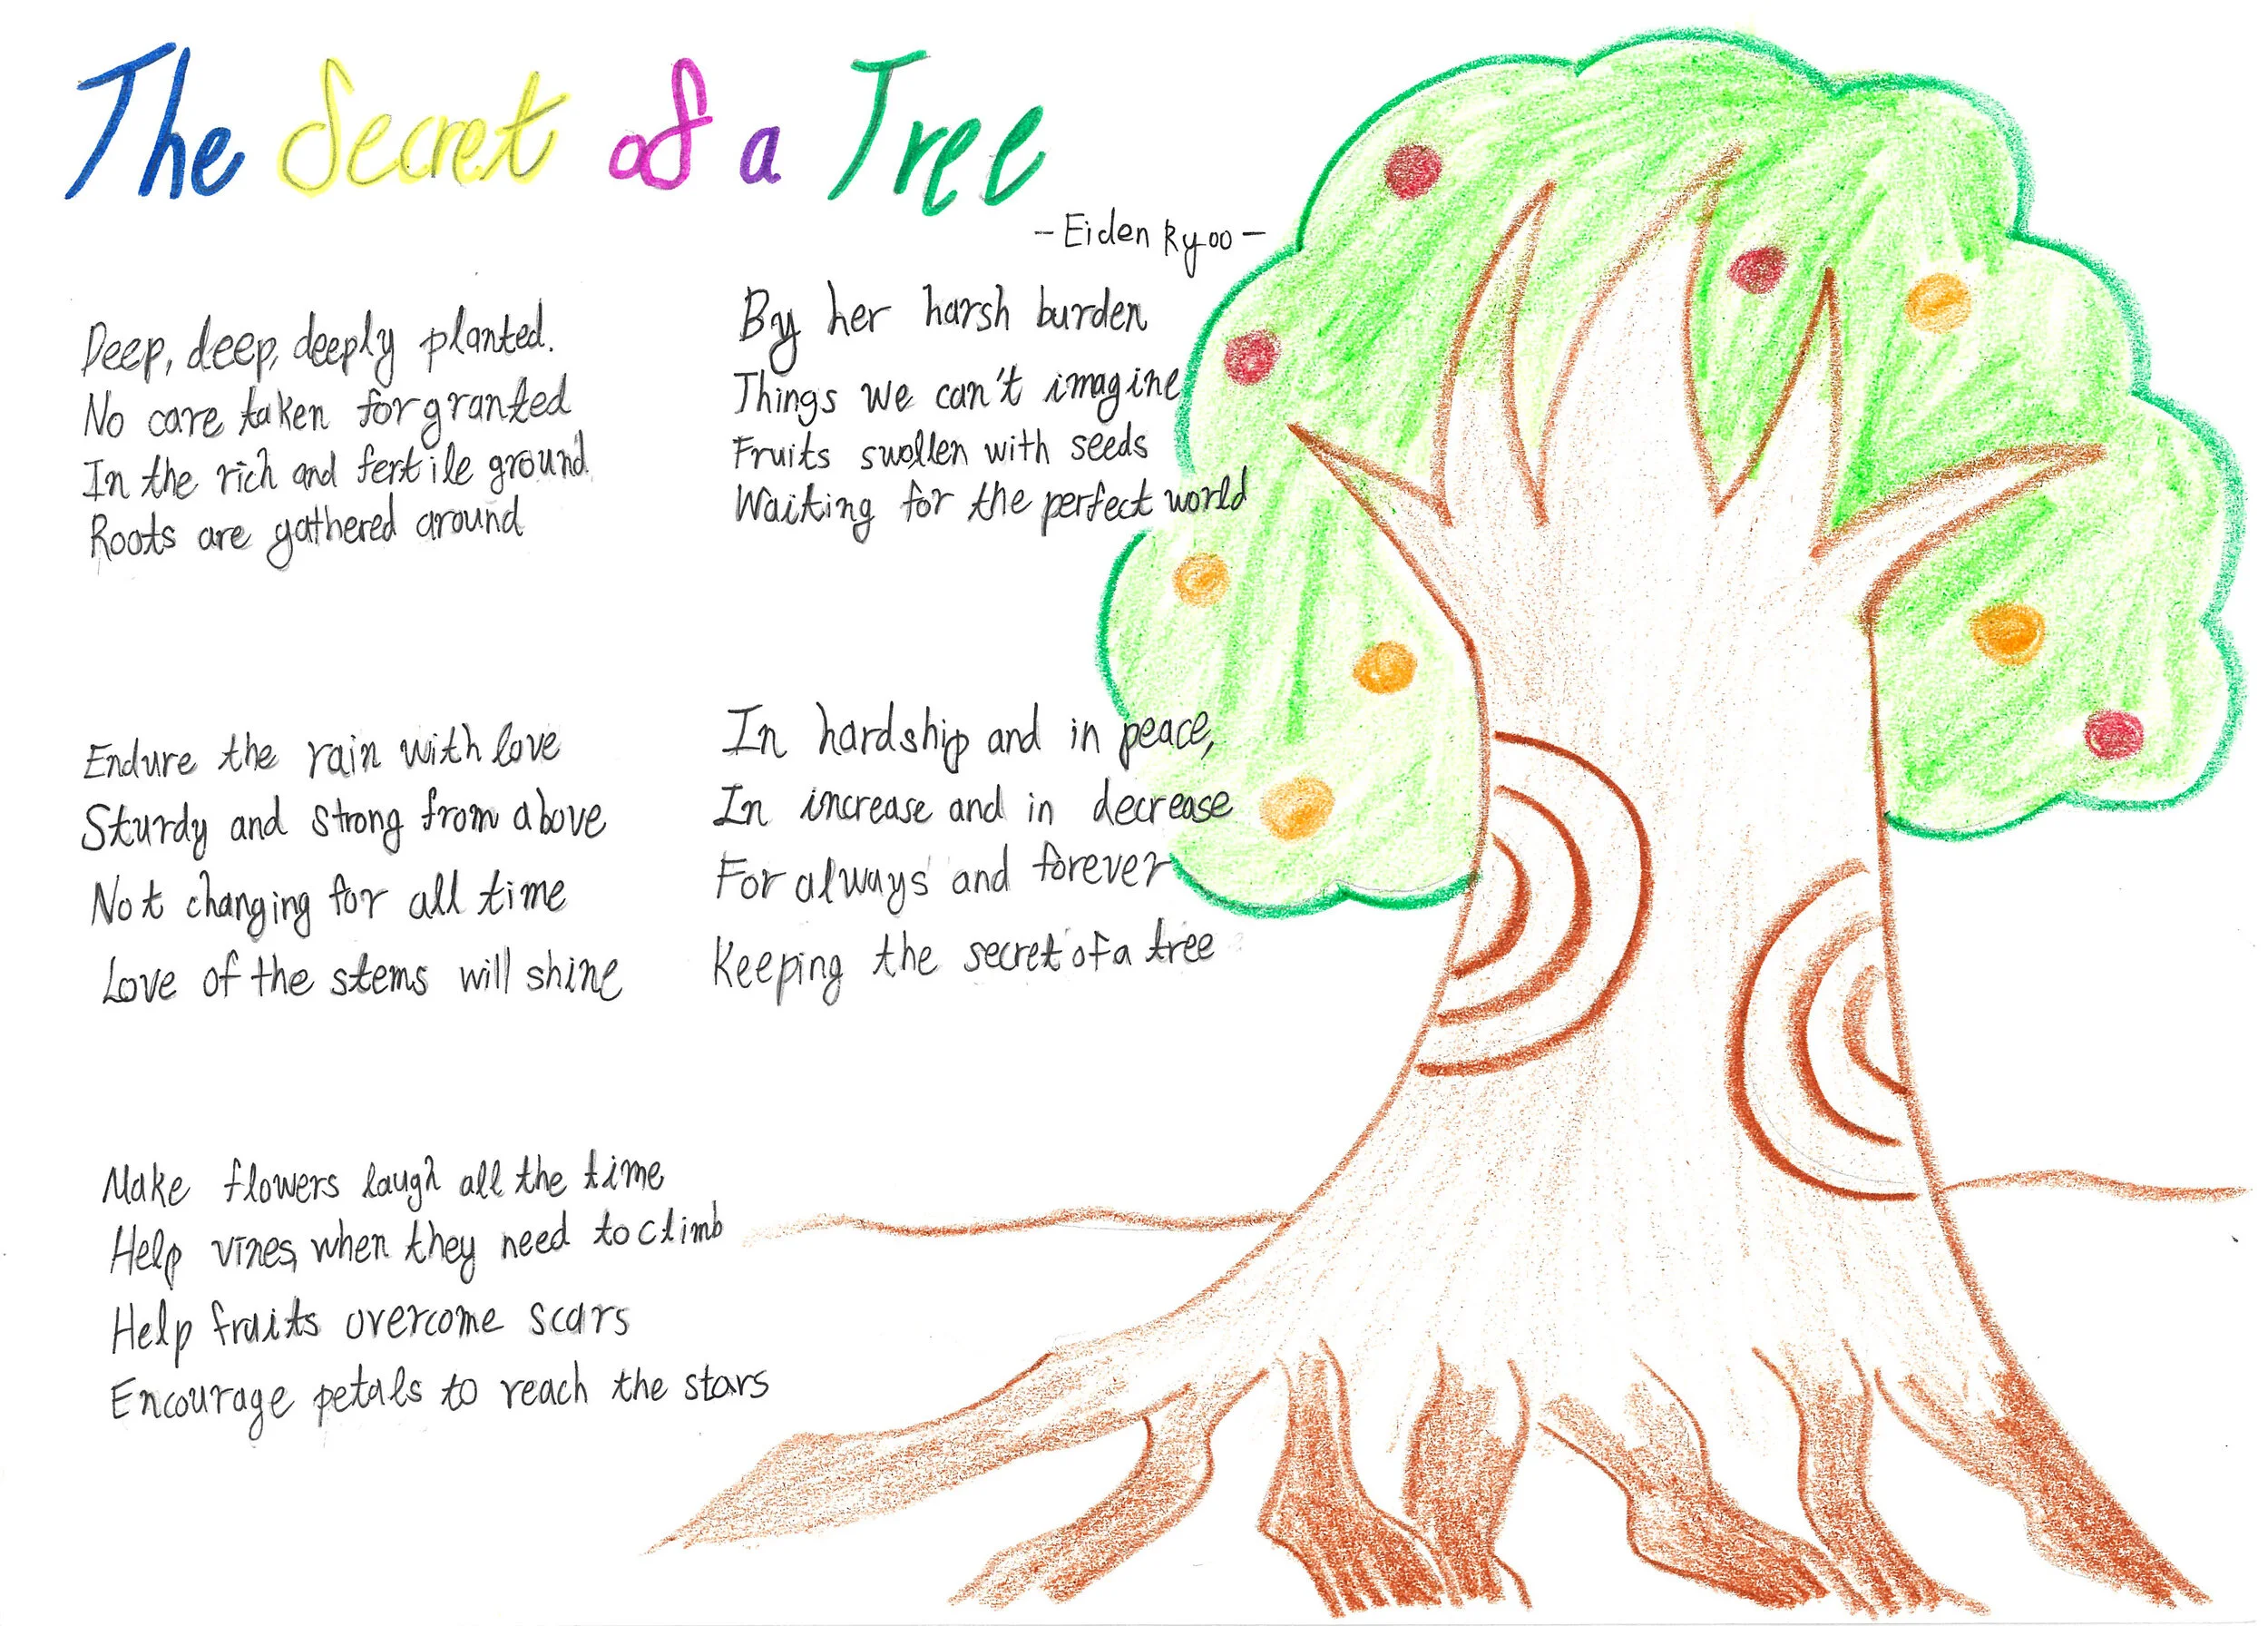 The Secret of a Tree
- Eiden Ryoo -
Deep, deep, deeply planted.
No care taken for granted
In the rich and fertile ground
Roots are gathered around
Endure the rain with love
Sturdy and strong from above
Not changing for all time
Love of the stems will shine
Make flowers laugh all the time
Help vines, when they need to climb
Help fruits overcome scars
Encourage petals to reach the stars
By her harsh burden
Things we can't imagine
Fruits swollen with seeds
Waiting for the perfect world
In hardship and in peace,
In increase and in decrease
For always and forever
Keeping the secret of a tree